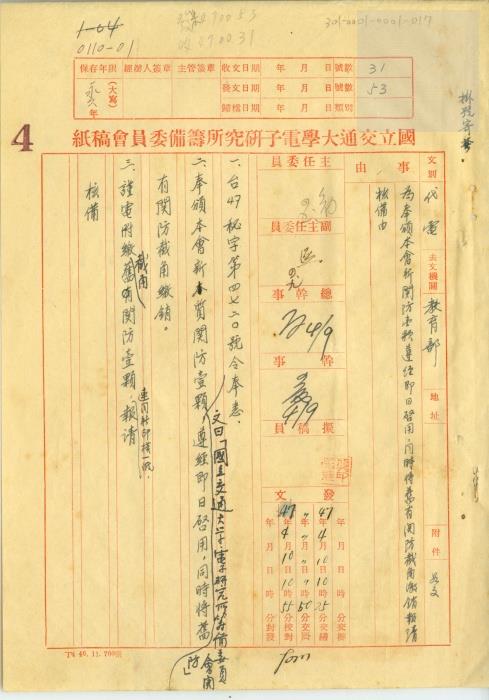 1-04
0110-01
發文470053
收470031
301-0001-0001-017
掛號寄發
4
保存年限
經辦人簽章
主管簽章
收文日期 年 月 日
發文日期 年 月 日
歸檔日期 年 月 日
號數 31
號數 53
類別
(大寫)
年
國立交通大學電子研究所籌備委員會稿紙
文別 代電
去文機關 教育部
地址
附件 如文
事由
為奉頒本會新關防壹顆遵經即日啓用,同時將舊有關防截角繳銷報請
核備由
主任委員
副主任委員
總幹事
4/9
幹事
4/9
擬稿員
發文
47年4月10日10時55分封發
47年4月10日10時25分交繕
一、台47秘字第四七二〇號令奉悉。
二、奉頒本會新木質關防壹顆,文曰「國立交通大學電子研究所籌備委員會關防」遵經即日啓用,同時將舊
有關防截角繳銷。
三、謹電附繳截角舊有關防壹顆,連同新印模一紙,報請
核備
TN 46. 11. 700張